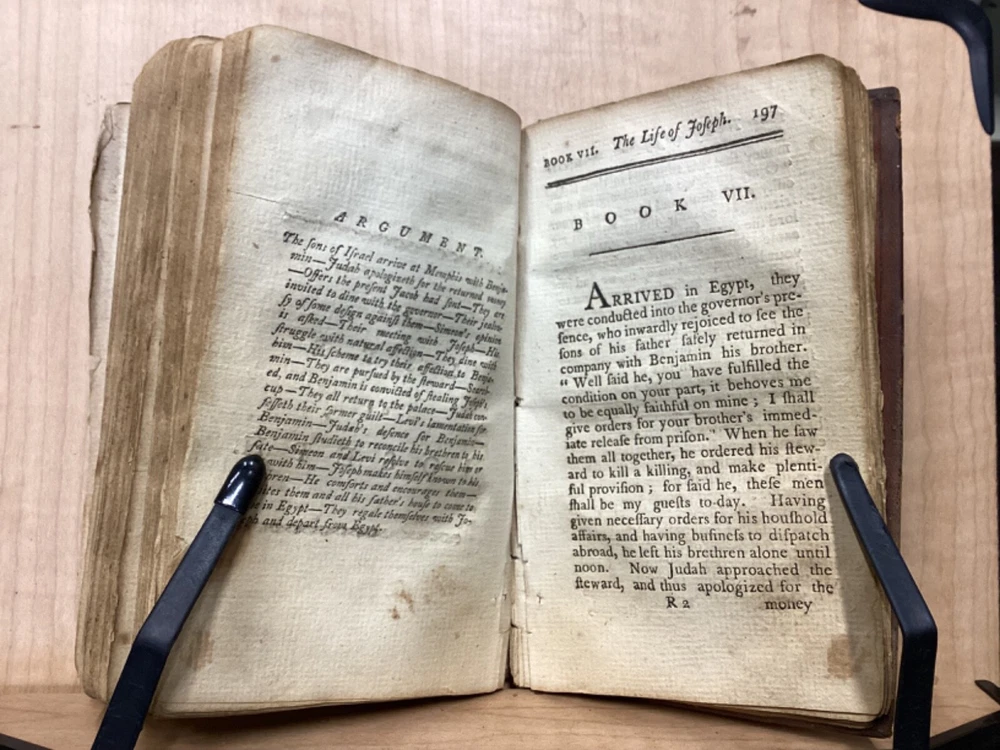 ARGUMENT.
The ſons of Iſrael arrive at Memphis with Benja-
min—Judah apologizeth for the returned money
—Offers the preſent Jacob had ſent—They are
invited to dine with the governor—Their jealou-
ſy of ſome deſign againſt them—Simeon's opinion
is aſked—Their meeting with Joſeph—His
ſtruggle with natural affection—They dine with
him—His ſcheme to try their affection to Benja-
min—They are purſued by the ſteward—Search-
ed, and Benjamin is convicted of ſtealing Joſeph's
cup—They all return to the palace—Judah con-
feſſeth their former guilt—Levi's lamentation for
Benjamin—Judah's defence for Benjamin—
Benjamin ſtudieth to reconcile his brethren to his
fate—Simeon and Levi reſolve to reſcue him or
with him—Joſeph makes himſelf known to his
bren—He comforts and encourages them—
ites them and all his father's houſe to come to
e in Egypt—They regale themſelves with Jo-
ph and depart from Egypt.
BOOK VII. The Life of Joſeph. 197
BOOK VII.
ARRIVED in Egypt, they
were conducted into the governor's pre-
ſence, who inwardly rejoiced to ſee the
ſons of his father ſafely returned in
company with Benjamin his brother.
“ Well ſaid he, you have fulfilled the
condition on your part, it behoves me
to be equally faithful on mine ; I ſhall
give orders for your brother's immed-
iate releaſe from priſon.” When he ſaw
them all together, he ordered his ſtew-
ard to kill a killing, and make plenti-
ful proviſion ; for ſaid he, theſe men
ſhall be my gueſts to-day. Having
given neceſſary orders for his houſhold
affairs, and having buſineſs to diſpatch
abroad, he left his brethren alone until
noon. Now Judah approached the
ſteward, and thus apologized for the
R 2 money